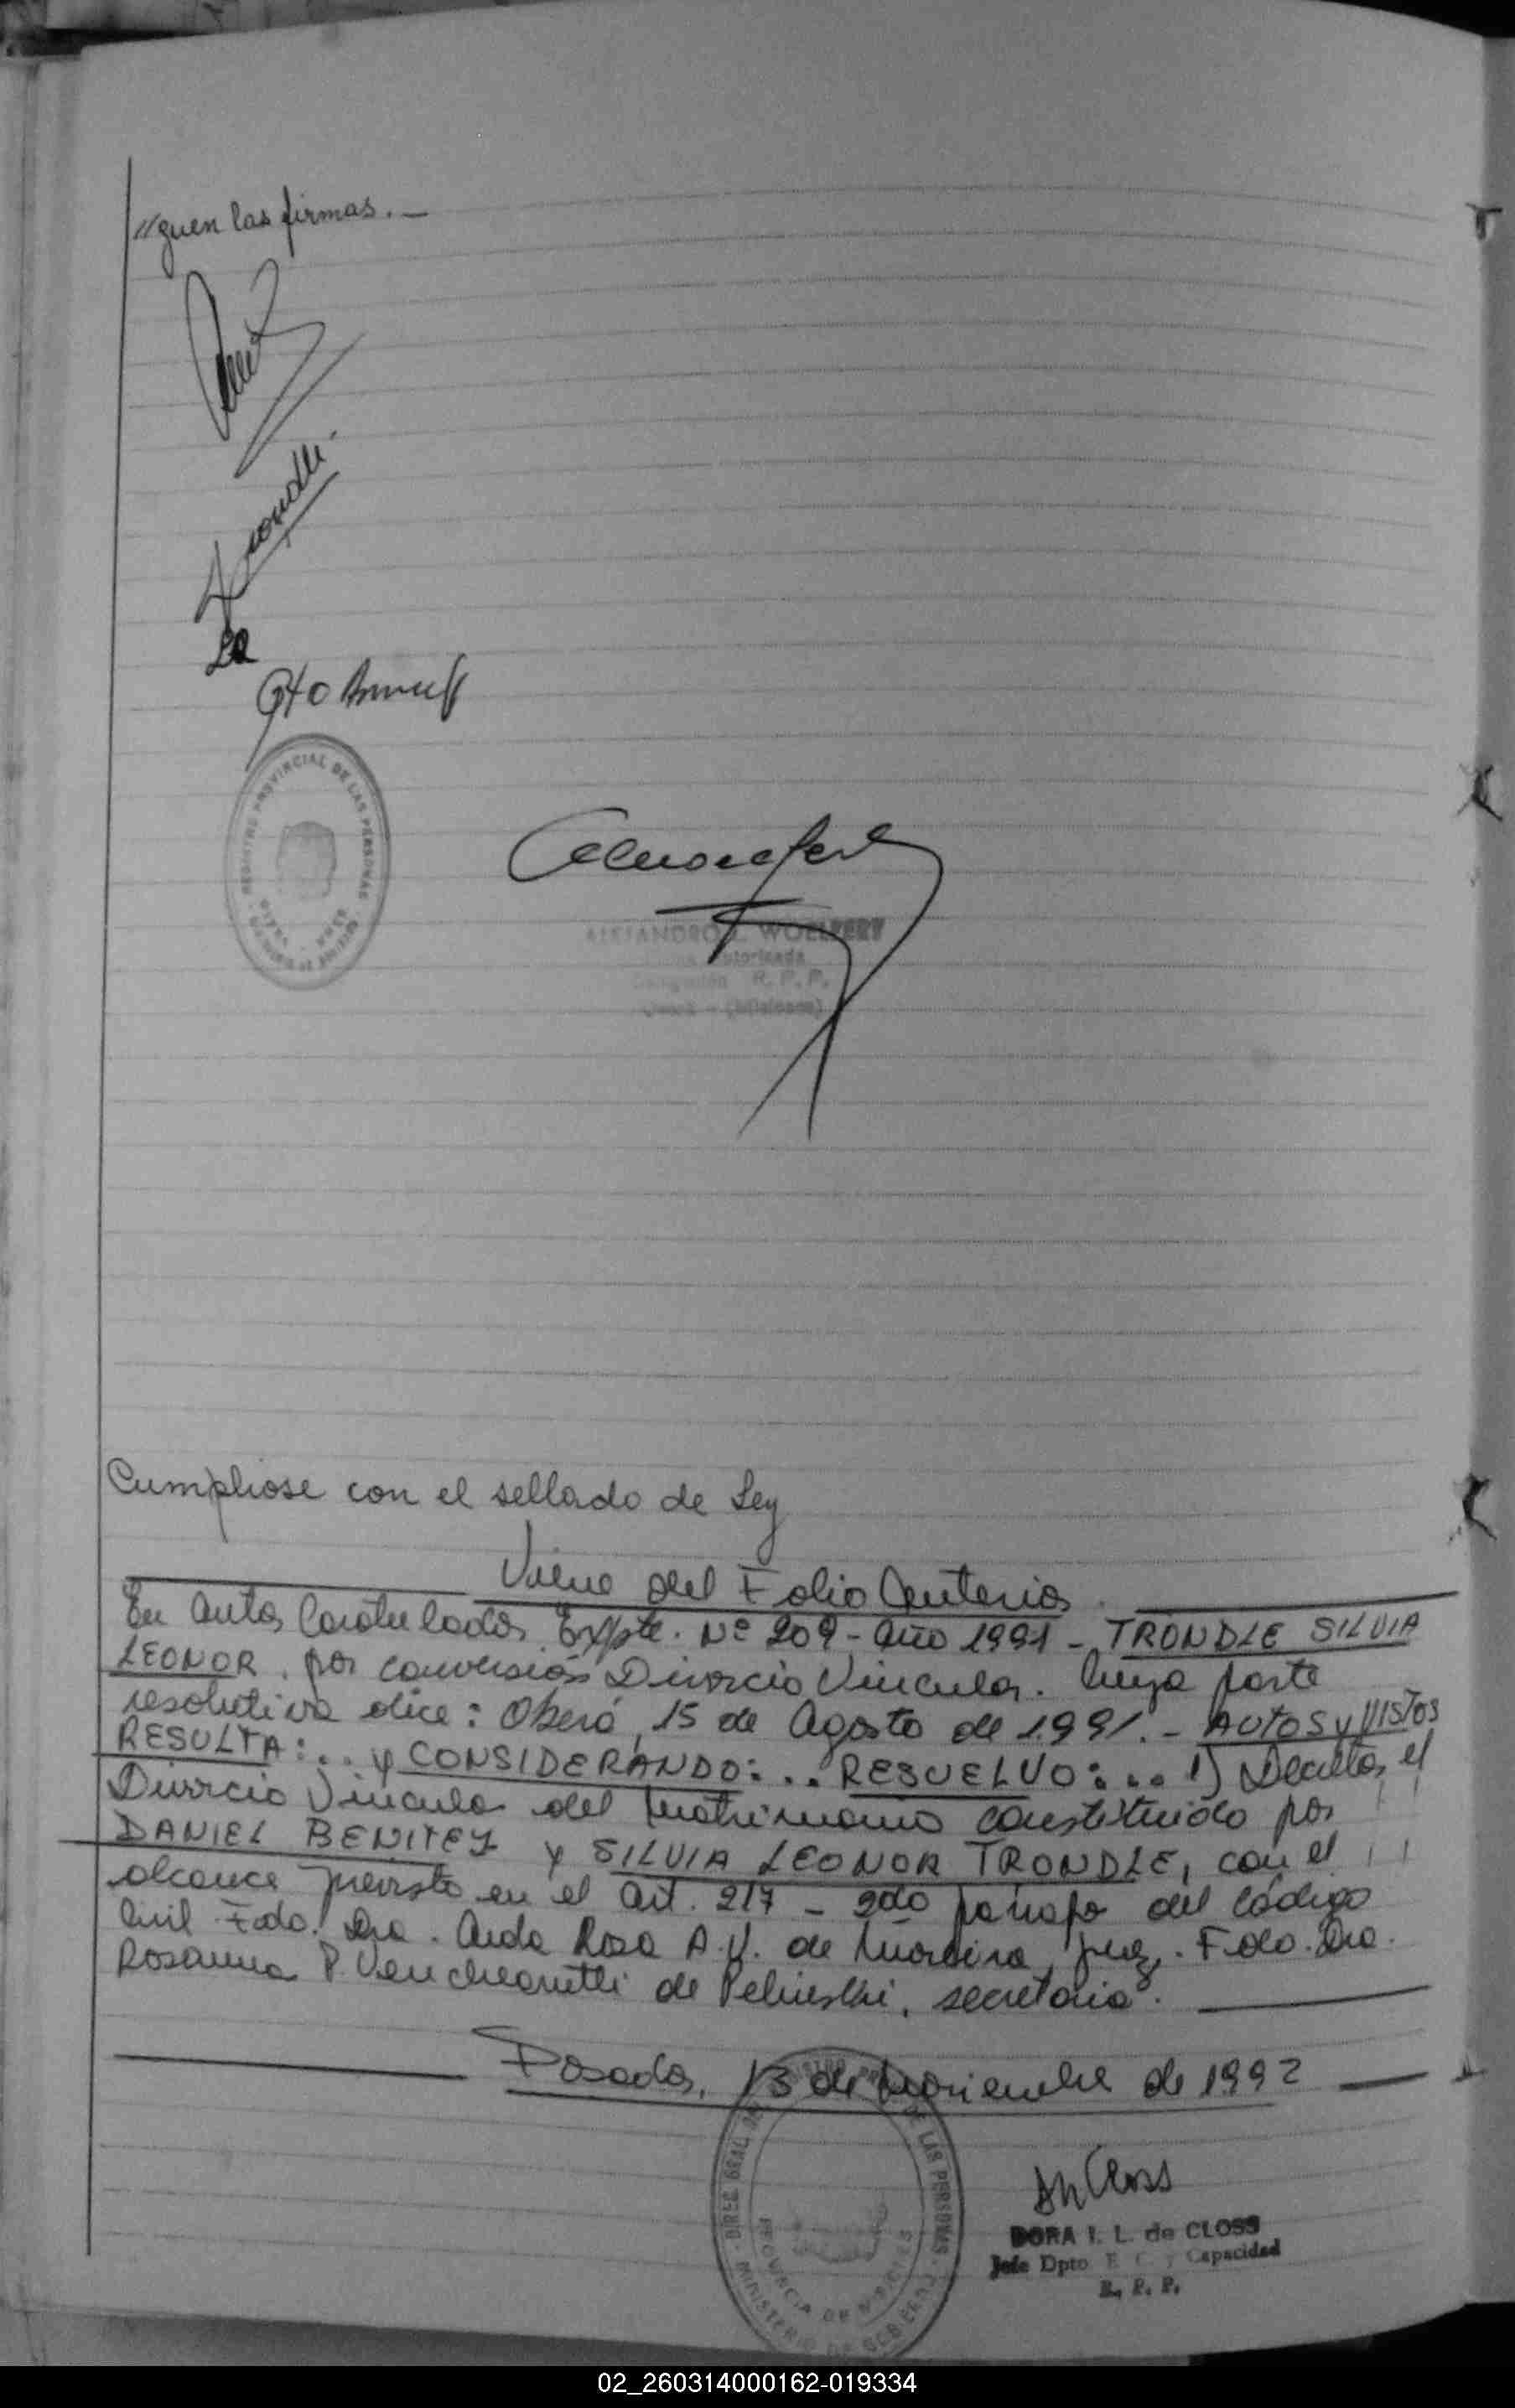 //guen las firmas. —
REGISTRO PROVINCIAL DE LAS PERSONAS
ALEJANDRO WOELFERT
Autorizada
Delegación R. P. P.
(Misiones)
Cumpliose con el sellado de Ley
Viene del Folio Anterior.
En autos Caratulados Expte. Nº 209 - año 1991 - TRONDLE SILVIA
LEONOR, por conversión Divorcio Vincular. Cuya parte
resolutiva dice: Oberá, 15 de Agosto de 1.991. - AUTOS y VISTOS
RESULTA: .. y CONSIDERANDO: .. RESUELVO: .. 1) Decretar el
Divorcio Vincular del Matrimonio constituido por
DANIEL BENITEZ y SILVIA LEONOR TRONDLE, con el
alcance previsto en el Art. 217 - 2do párrafo del Código
Civil. Fdo. Dra. Aida Rosa A. V. de Moreira, juez. - Fdo. Dra.
Rosanna P. de secretaria.
Posadas, 13 de Noviembre de 1992
DIREC. GRAL. DEL REGISTRO PROV. DE LAS PERSONAS
PROVINCIA DE MISIONES
MINISTERIO DE GOBIERNO
Closs
DORA I. L. de CLOSS
Jefe Dpto E. C. y Capacidad
R. P. P.
02_260314000162-019334